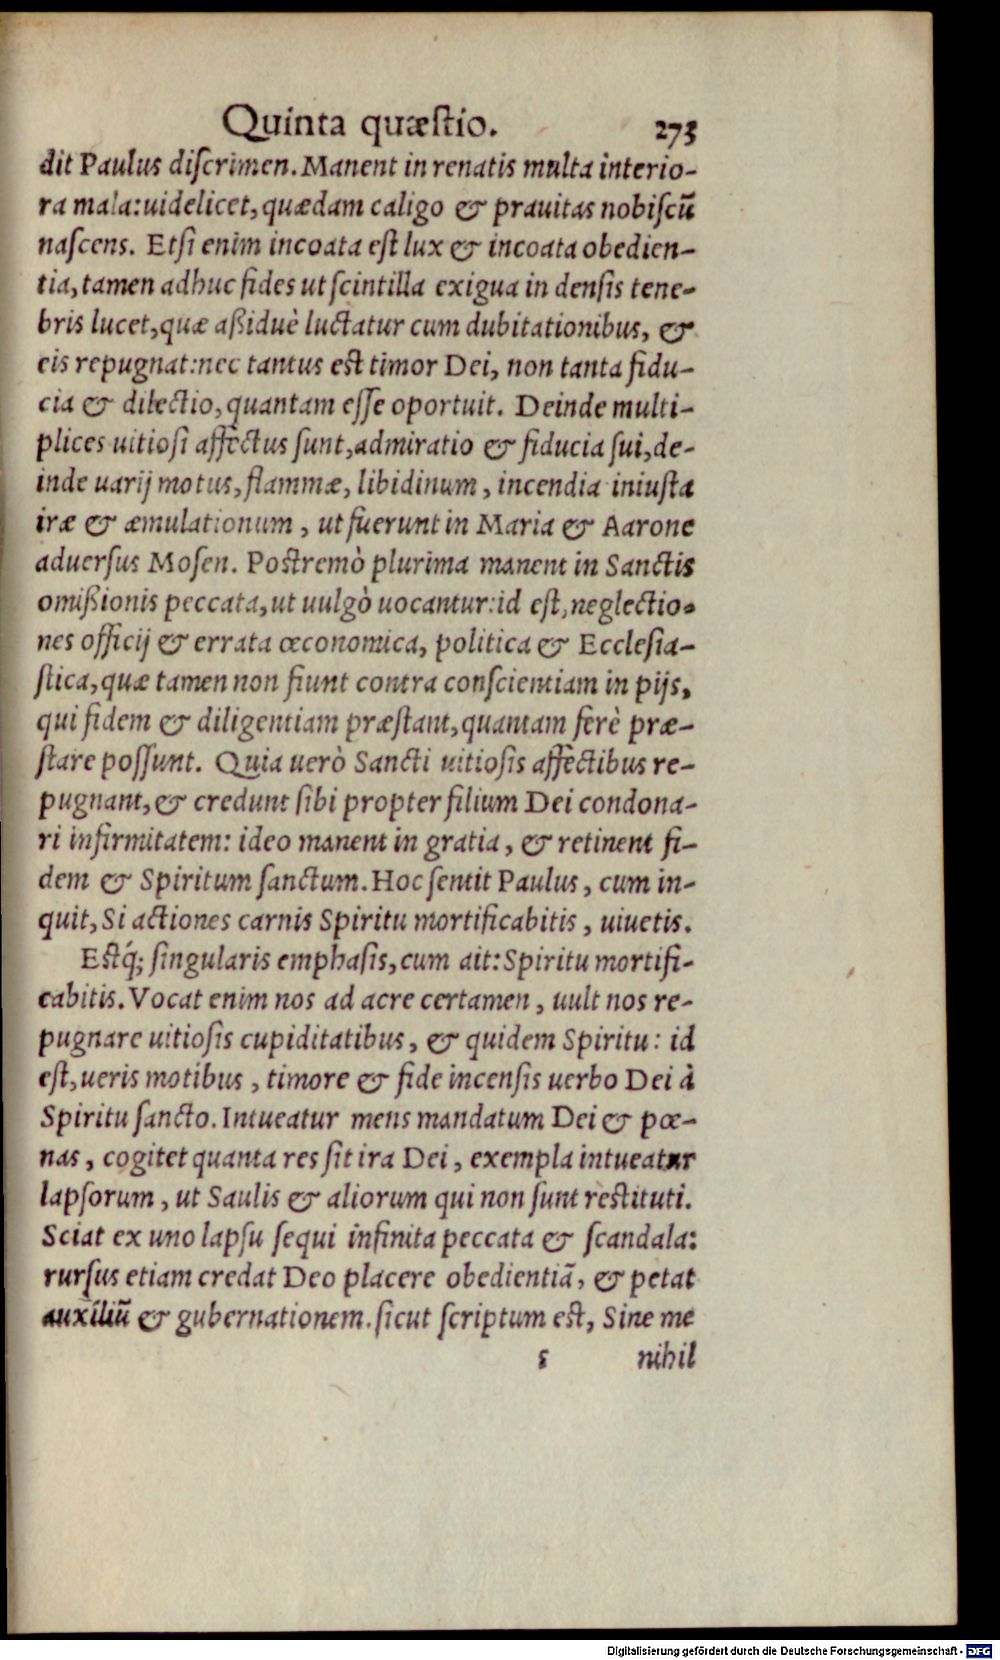 Quinta quæſtio. 273
dit Paulus diſcrimen. Manent in renatis multa interio-
ra mala: uidelicet, quædam caligo & prauitas nobiſcũ
naſcens. Etſi enim incoata eſt lux & incoata obedien-
tia, tamen adhuc fides ut ſcintilla exigua in denſis tene-
bris lucet, quæ aßiduè luctatur cum dubitationibus, &
eis repugnat: nec tantus est timor Dei, non tanta fidu-
cia & dilectio, quantam eſſe oportuit. Deinde multi-
plices uitioſi affectus ſunt, admiratio & fiducia ſui, de-
inde uarij motus, flammæ, libidinum, incendia iniuſta
iræ & æmulationum, ut fuerunt in Maria & Aarone
aduerſus Moſen. Postremò plurima manent in Sanctis
omißionis peccata, ut uulgò uocantur: id eſt, neglectio-
nes officij & errata œconomica, politica & Eccleſia-
ſtica, quæ tamen non fiunt contra conſcientiam in pijs,
qui fidem & diligentiam præſtant, quantam ferè præ-
ſtare poſſunt. Quia uerò Sancti uitioſis affectibus re-
pugnant, & credunt ſibi propter filium Dei condona-
ri infirmitatem: ideo manent in gratia, & retinent fi-
dem & Spiritum ſanctum. Hoc ſentit Paulus, cum in-
quit, Si actiones carnis Spiritu mortificabitis, uiuetis.
Estq́; ſingularis emphaſis, cum ait: Spiritu mortifi-
cabitis. Vocat enim nos ad acre certamen, uult nos re-
pugnare uitioſis cupiditatibus, & quidem Spiritu: id
eſt, ueris motibus, timore & fide incenſis uerbo Dei à
Spiritu ſancto. Intueatur mens mandatum Dei & pœ-
nas, cogitet quanta res ſit ira Dei, exempla intueatur
lapſorum, ut Saulis & aliorum qui non ſunt restituti.
Sciat ex uno lapſu ſequi infinita peccata & ſcandala:
rurſus etiam credat Deo placere obedientiã, & petat
auxiliũ & gubernationem. ſicut ſcriptum est, Sine me
s nihil
Digitalisierung gefördert durch die Deutsche Forschungsgemeinschaft - DFG